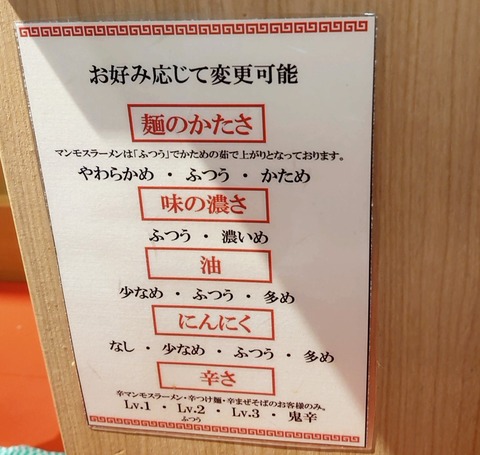 お好み応じて変更可能
麺のかたさ
マンモスラーメンは「ふつう」でかための茹で上がりとなっております。
やわらかめ ・ ふつう ・ かため
味の濃さ
ふつう ・ 濃いめ
油
少なめ ・ ふつう ・ 多め
にんにく
なし ・ 少なめ ・ ふつう ・ 多め
辛さ
辛マンモスラーメン・辛つけ麺・辛まぜそばのお客様のみ。
Lv.1 ・ Lv.2 ・ Lv.3 ・ 鬼辛
ふつう